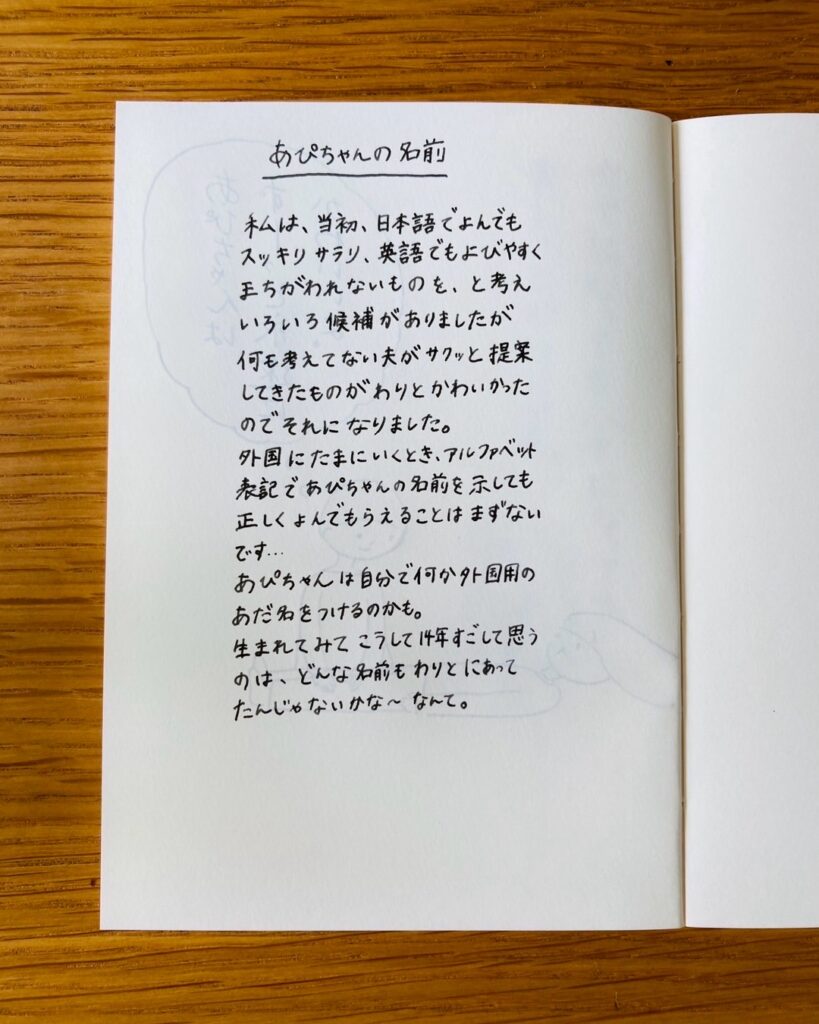 あぴちゃんの名前
私は、当初、日本語でよんでも
スッキリサラリ、英語でもよびやすく
まちがわれないものを、と考え
いろいろ候補がありましたが
何も考えてない夫がサクッと提案
してきたものがわりとかわいかった
のでそれになりました。
外国にたまにいくとき、アルファベット
表記であぴちゃんの名前を示しても
正しくよんでもらえることはまずない
です…
あぴちゃんは自分で何か外国用の
あだ名をつけるのかも。
生まれてみてこうして14年すごして思う
のは、どんな名前もわりとにあって
たんじゃないかな〜なんて。